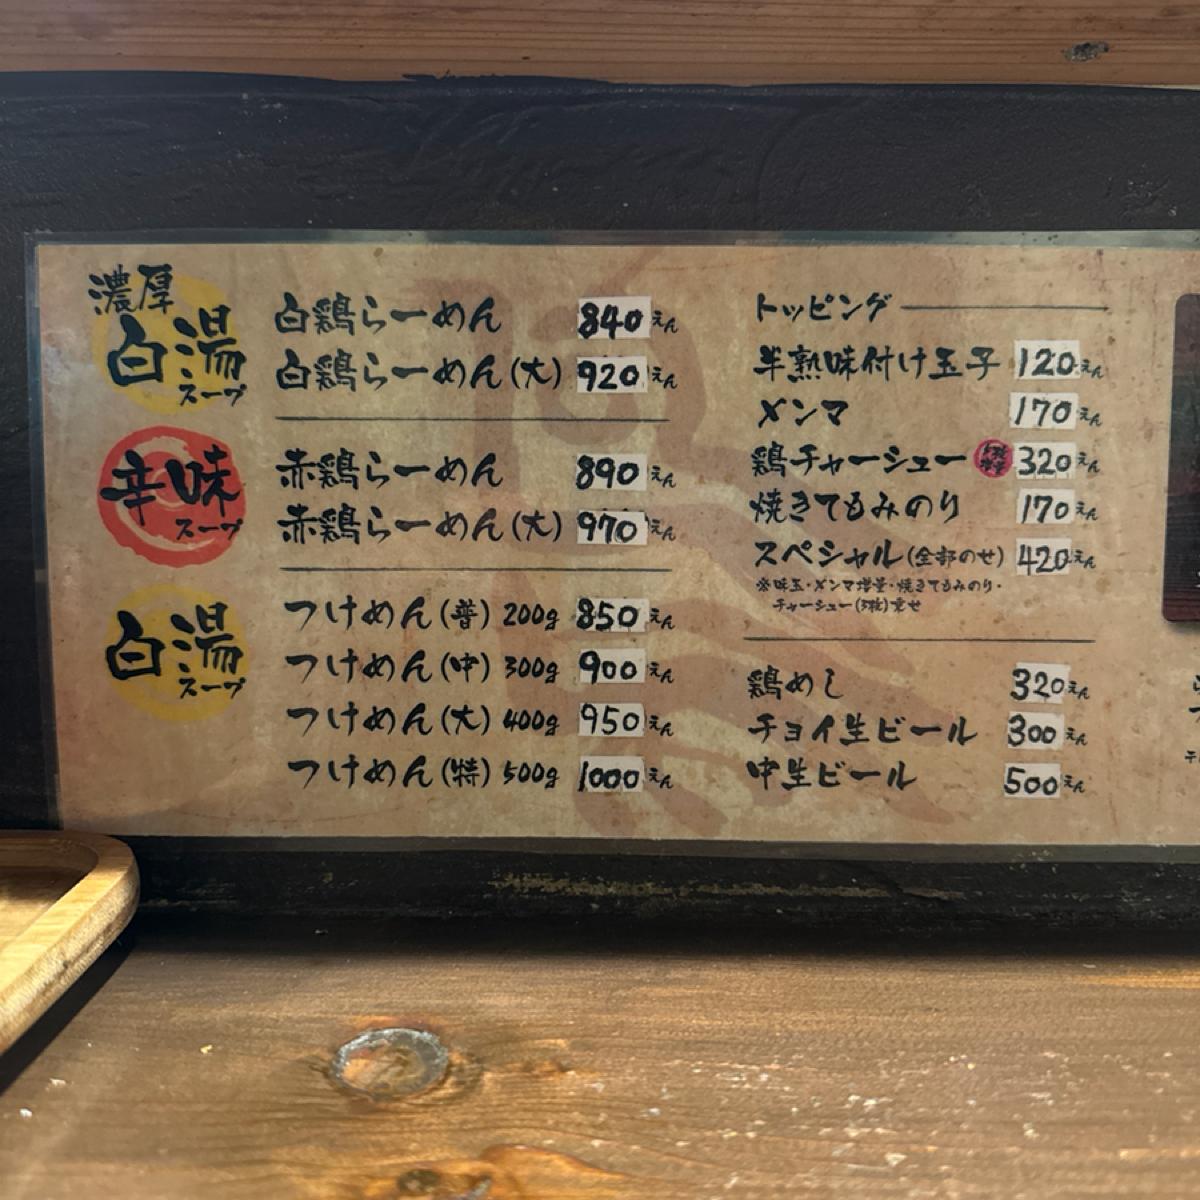 濃厚
白湯
スープ
白鶏らーめん 840えん
白鶏らーめん(大) 920えん
辛味
スープ
赤鶏らーめん 890えん
赤鶏らーめん(大) 970えん
白湯
スープ
つけめん(普) 200g 850えん
つけめん(中) 300g 900えん
つけめん(大) 400g 950えん
つけめん(特) 500g 1000えん
トッピング
半熟味付け玉子 120えん
メンマ 170えん
鶏チャーシュー 320えん
焼きてもみのり 170えん
スペシャル(全部のせ) 420えん
※味玉・メンマ増量・焼きてもみのり・
チャーシュー
鶏めし 320えん
チョイ生ビール 300えん
中生ビール 500えん